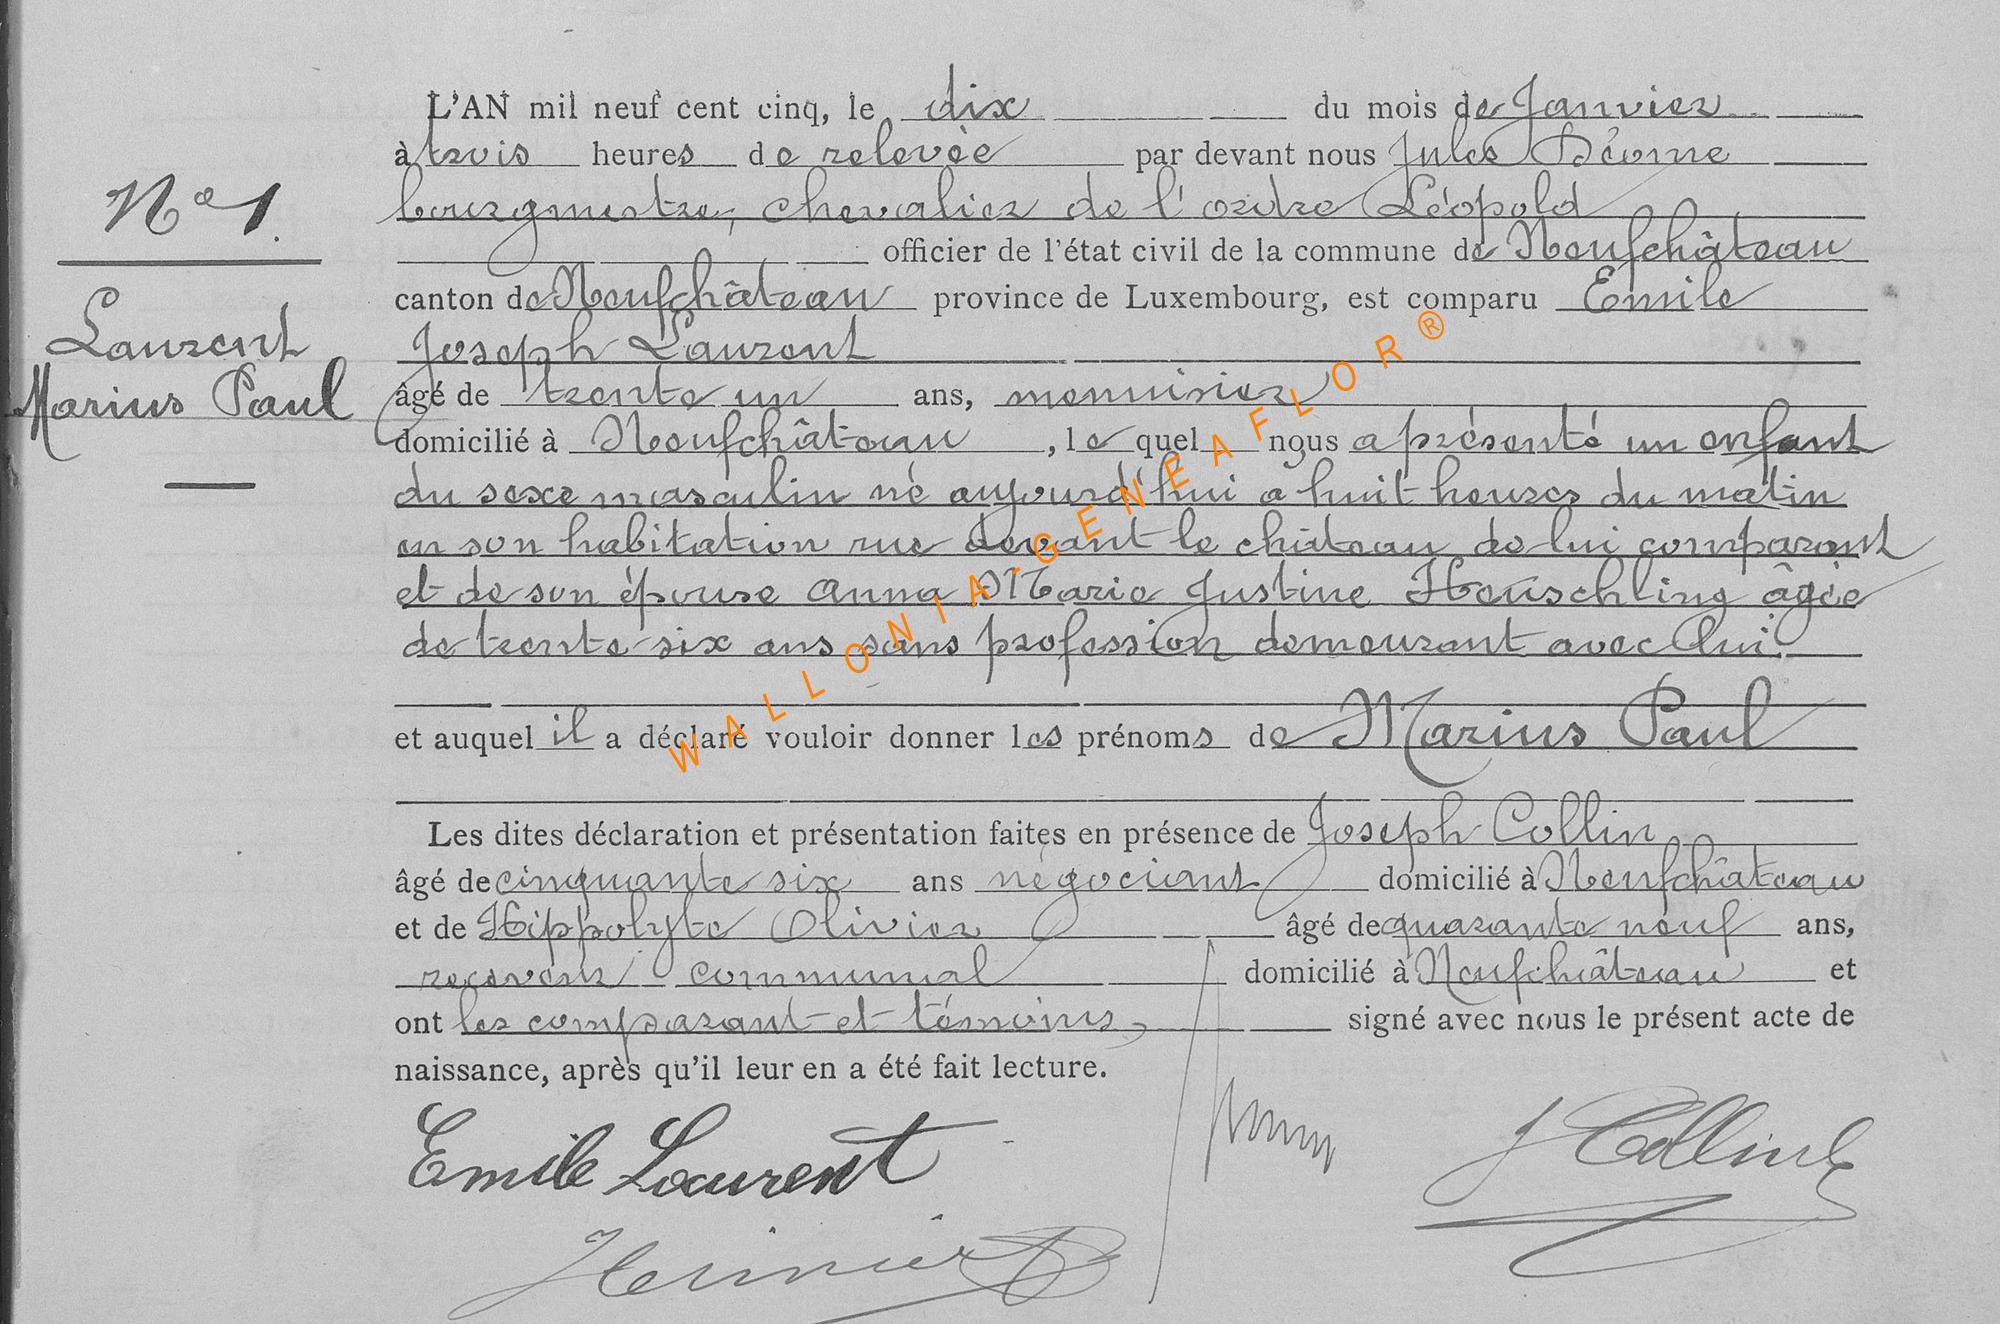 L'AN mil neuf cent cinq, le dix du mois de Janvier
à trois heures de relevée par devant nous Jules
bourgmestre, chevalier de l'ordre Léopold
N° 1.
officier de l'état civil de la commune de Neufchâteau
canton de Neufchâteau province de Luxembourg, est comparu Emile
Laurent
Joseph Laurent
Marius Paul
âgé de trente un ans, menuisier
domicilié à Neufchâteau, le quel nous a présenté un enfant
du sexe masculin né aujourd'hui a huit heures du matin
en son habitation rue devant le château de lui comparant
et de son épouse Anna Marie Justine Heuschling âgée
de trente-six ans sans profession demeurant avec lui.
et auquel il a déclaré vouloir donner les prénoms de Marius Paul
Les dites déclaration et présentation faites en présence de Joseph Collin
âgé de cinquante six ans négociant domicilié à Neufchâteau
et de Hippolyte Olivier âgé de quarante neuf ans,
receveur communal domicilié à Neufchâteau et
ont les comparant et témoins, signé avec nous le présent acte de
naissance, après qu'il leur en a été fait lecture.
Emile Laurent
J Collin
WALLONIA-GENEAFLOR®